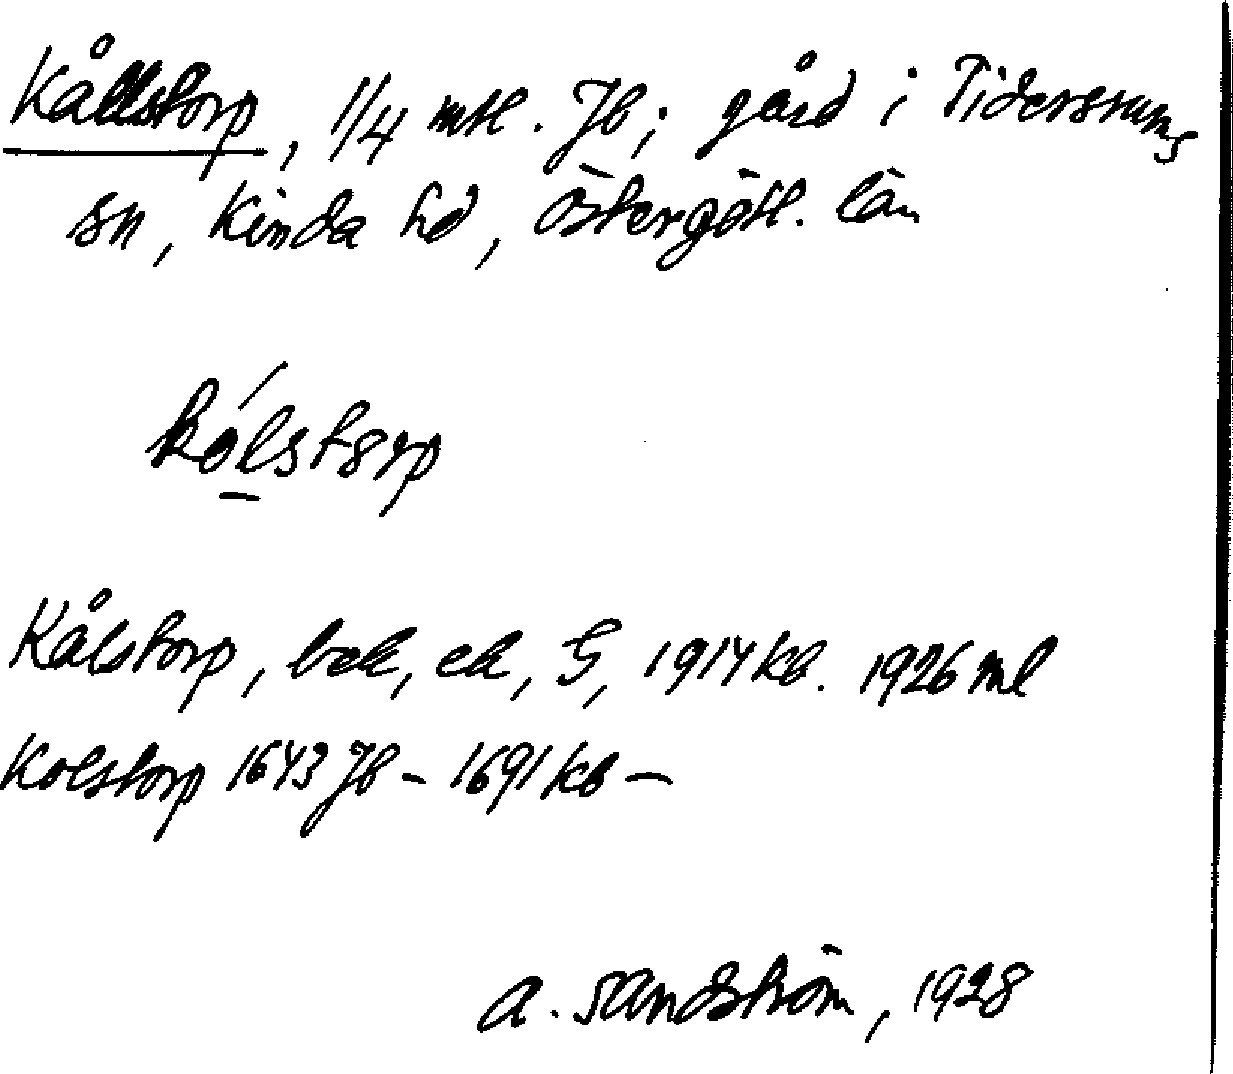 Kållstorp, 1/4 mtl. Jb; gård i Tidersrums
sn, Kinda hd, Östergötl. län
kó̲lstorp
Kålstorp, bek, ek, G, 1914 kb. 1926 ml
Kolstorp 1643 Jb – 1691 kb –
A. Sandström, 1928